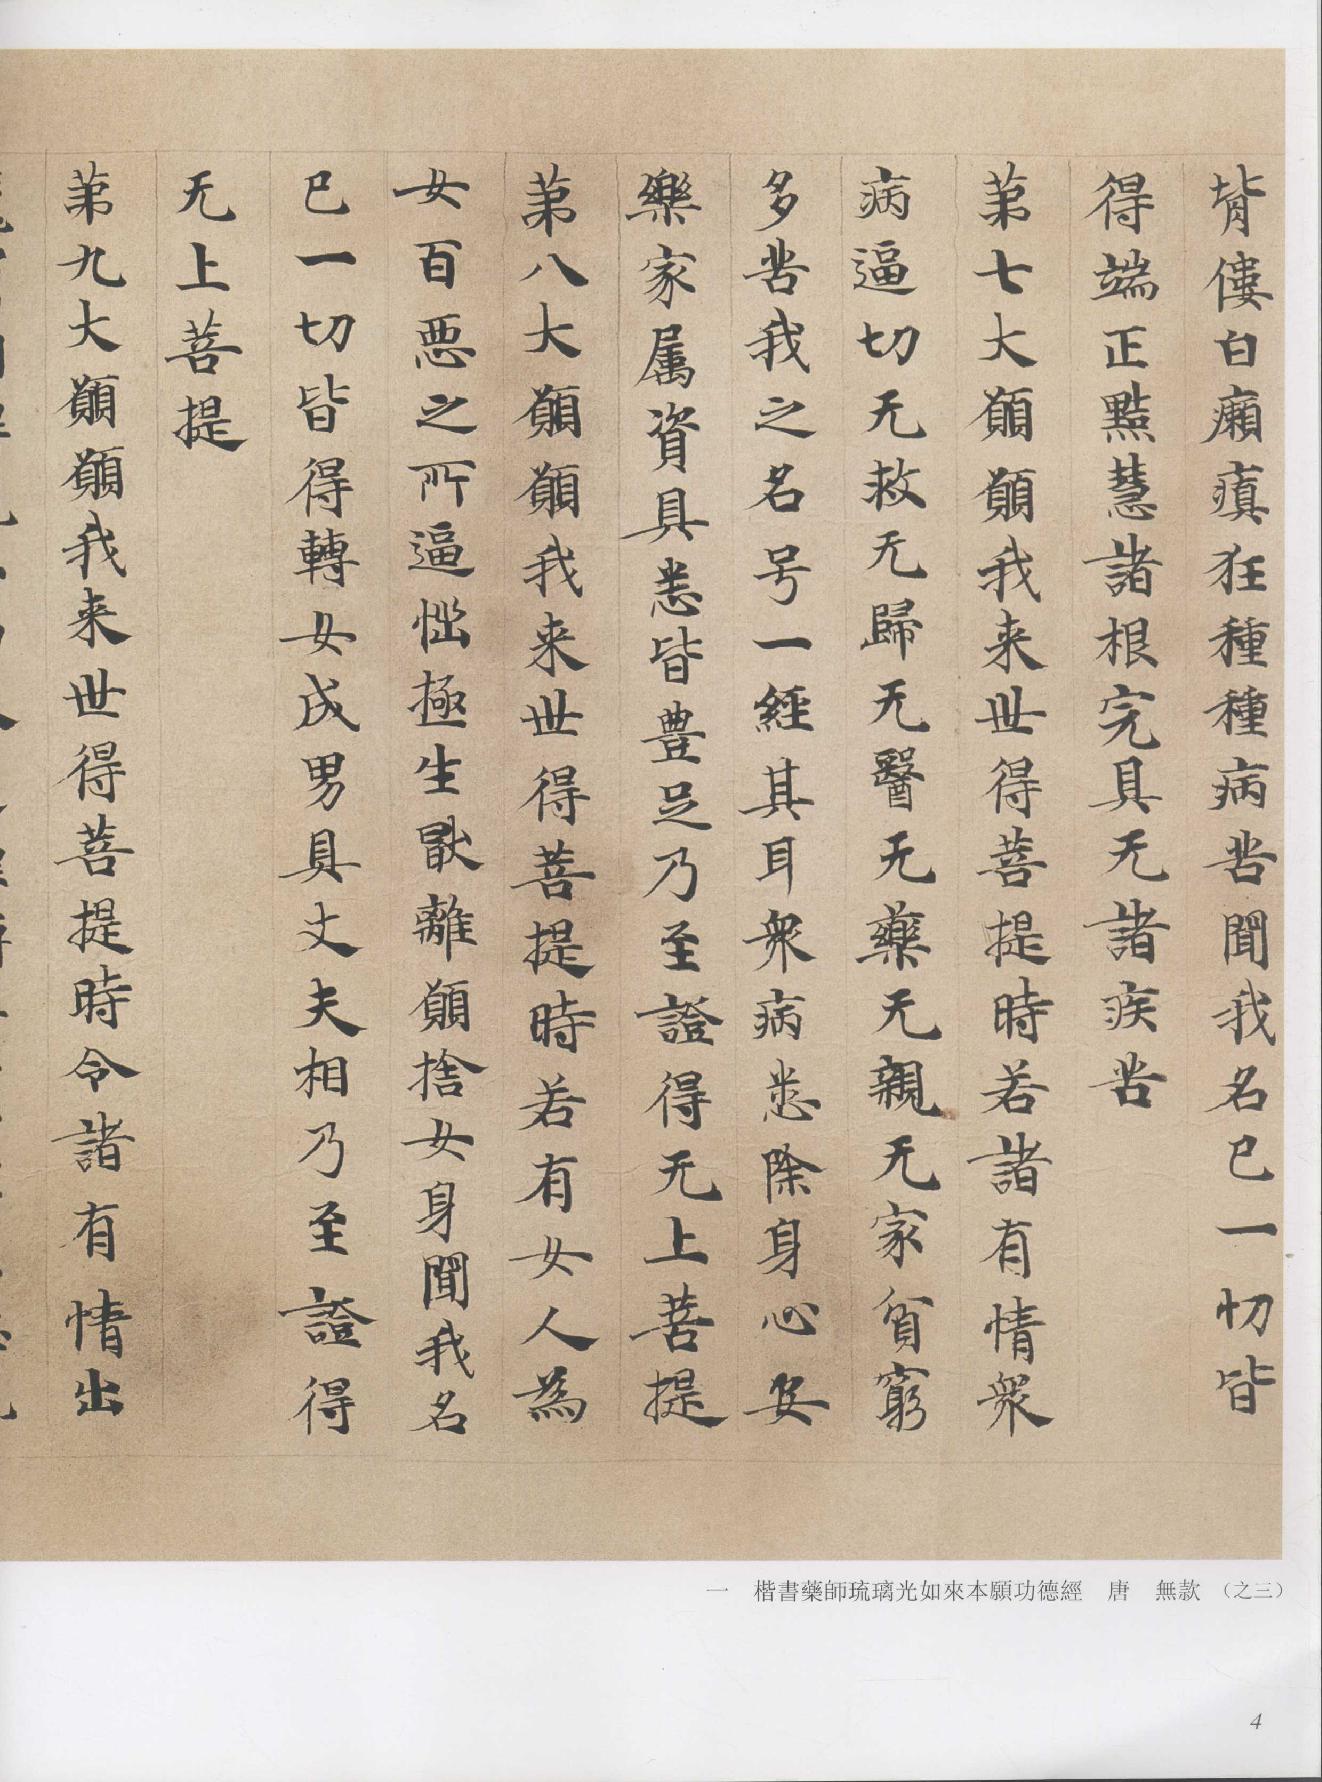 背僂白癩瘨狂種種病苦聞我名已一切皆
得端正黠慧諸根完具无諸疾苦
第七大願願我来世得菩提時若諸有情衆
病逼切无救无歸无醫无藥无親无家貧窮
多苦我之名号一經其耳衆病悉除身心安
樂家属資具悉皆豊足乃至證得无上菩提
第八大願願我来世得菩提時若有女人為
女百惡之所逼惱極生猒離願捨女身聞我名
已一切皆得轉女成男具丈夫相乃至證得
无上菩提
第九大願願我来世得菩提時令諸有情出
一 楷書藥師琉璃光如來本願功德經 唐 無款 （之三）
4